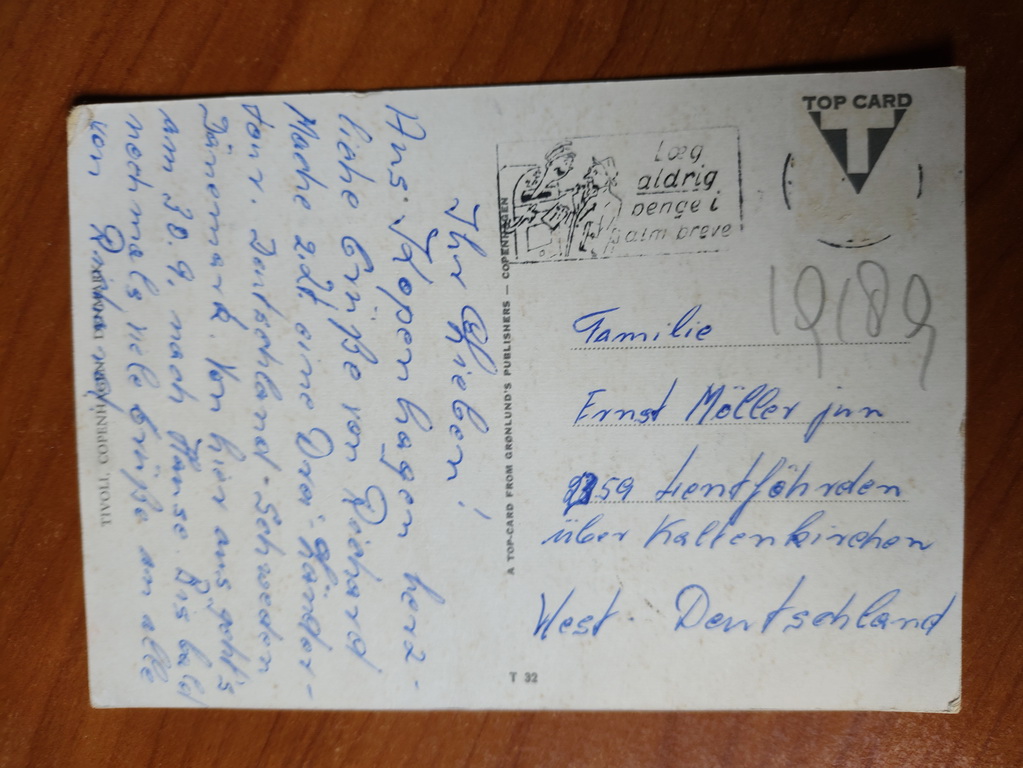 TOP CARD
T
Læg
aldrig
penge i
alm breve
19/89
Familie
Ernst Möller jun
2359 Lentföhrden
über Kaltenkirchen
West. Deutschland
T 32
A TOP-CARD FROM GRØNLUND'S PUBLISHERS — COPENHAGEN
Ihr Lieben!
Aus Kopenhagen herz-
liche Grüße von Richard
Mache z.Zt. eine Drei-Länder-
tour. Deutschland-Schweden
Dänemark. Von hier aus geht's
am 30.9. nach Hause. Bis bald
nochmals viele Grüße an alle
von
TIVOLI, COPENHAGEN, DENMARK